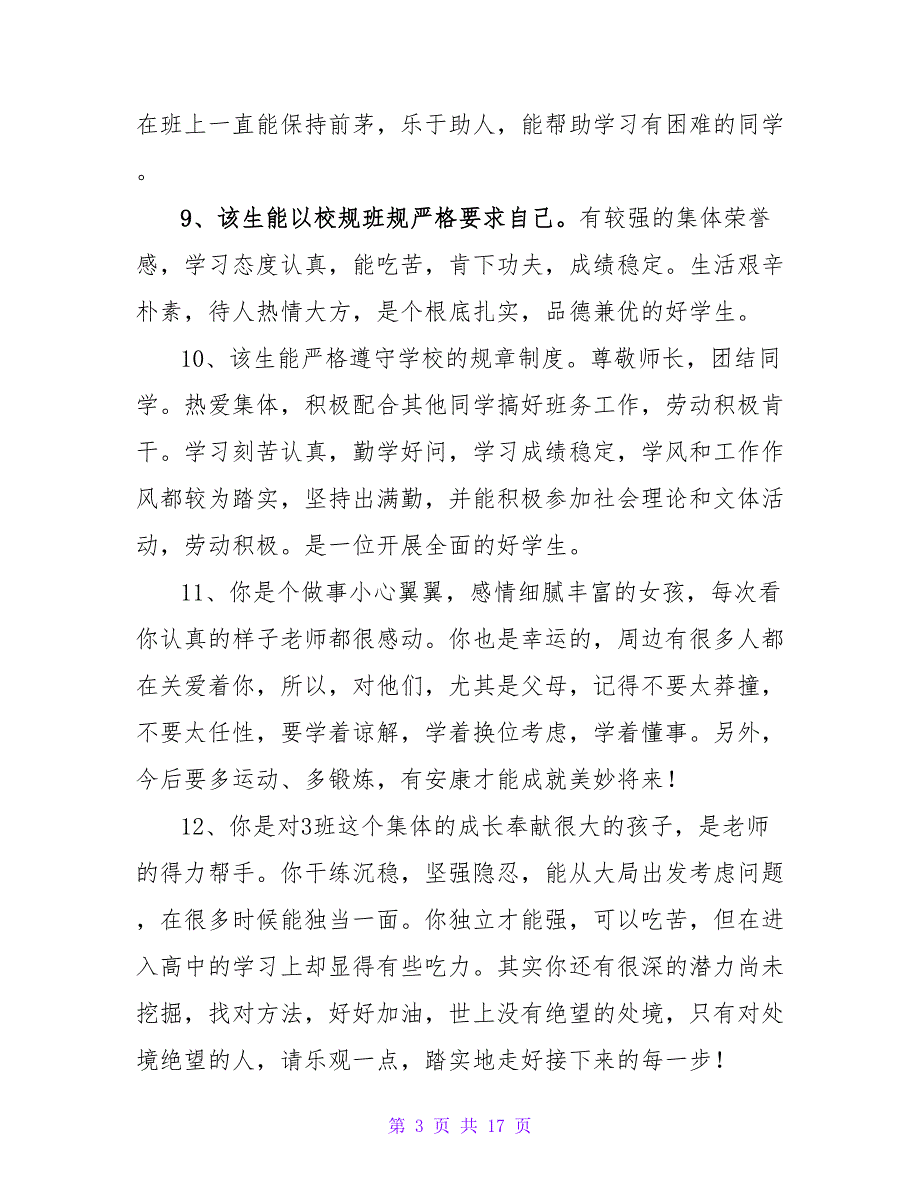 在班上一直能保持前茅，乐于助人，能帮助学习有困难的同学
。
9、该生能以校规班规严格要求自己。有较强的集体荣誉
感，学习态度认真，能吃苦，肯下功夫，成绩稳定。生活艰辛
朴素，待人热情大方，是个根底扎实，品德兼优的好学生。
10、该生能严格遵守学校的规章制度。尊敬师长，团结同
学。热爱集体，积极配合其他同学搞好班务工作，劳动积极肯
干。学习刻苦认真，勤学好问，学习成绩稳定，学风和工作作
风都较为踏实，坚持出满勤，并能积极参加社会理论和文体活
动，劳动积极。是一位开展全面的好学生。
11、你是个做事小心翼翼，感情细腻丰富的女孩，每次看
你认真的样子老师都很感动。你也是幸运的，周边有很多人都
在关爱着你，所以，对他们，尤其是父母，记得不要太莽撞，
不要太任性，要学着谅解，学着换位考虑，学着懂事。另外，
今后要多运动、多锻炼，有安康才能成就美妙将来！
12、你是对3班这个集体的成长奉献很大的孩子，是老师
的得力帮手。你干练沉稳，坚强隐忍，能从大局出发考虑问题
，在很多时候能独当一面。你独立才能强，可以吃苦，但在进
入高中的学习上却显得有些吃力。其实你还有很深的潜力尚未
挖掘，找对方法，好好加油，世上没有绝望的处境，只有对处
境绝望的人，请乐观一点，踏实地走好接下来的每一步！
第 3 页 共 17 页